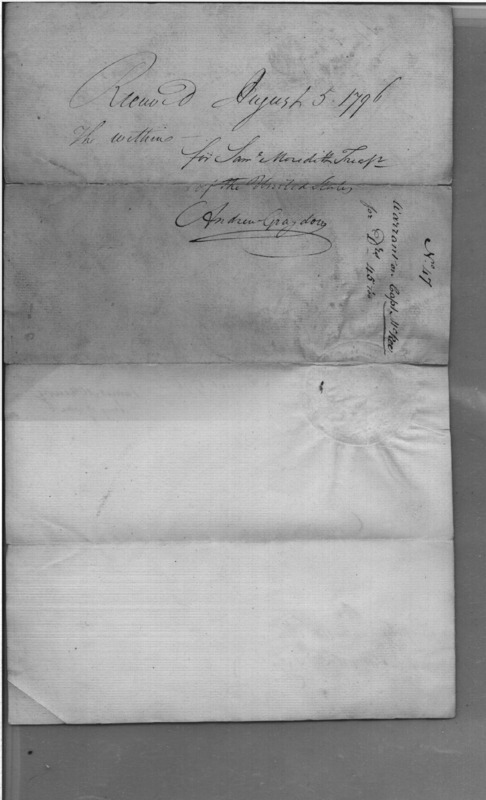 Received August 5. 1796
The within —
for Sam.l Meredith Treasr
of the United States,
Andrew Graydon
No. 47
Warrant on Capt. McKee
for Drs 45